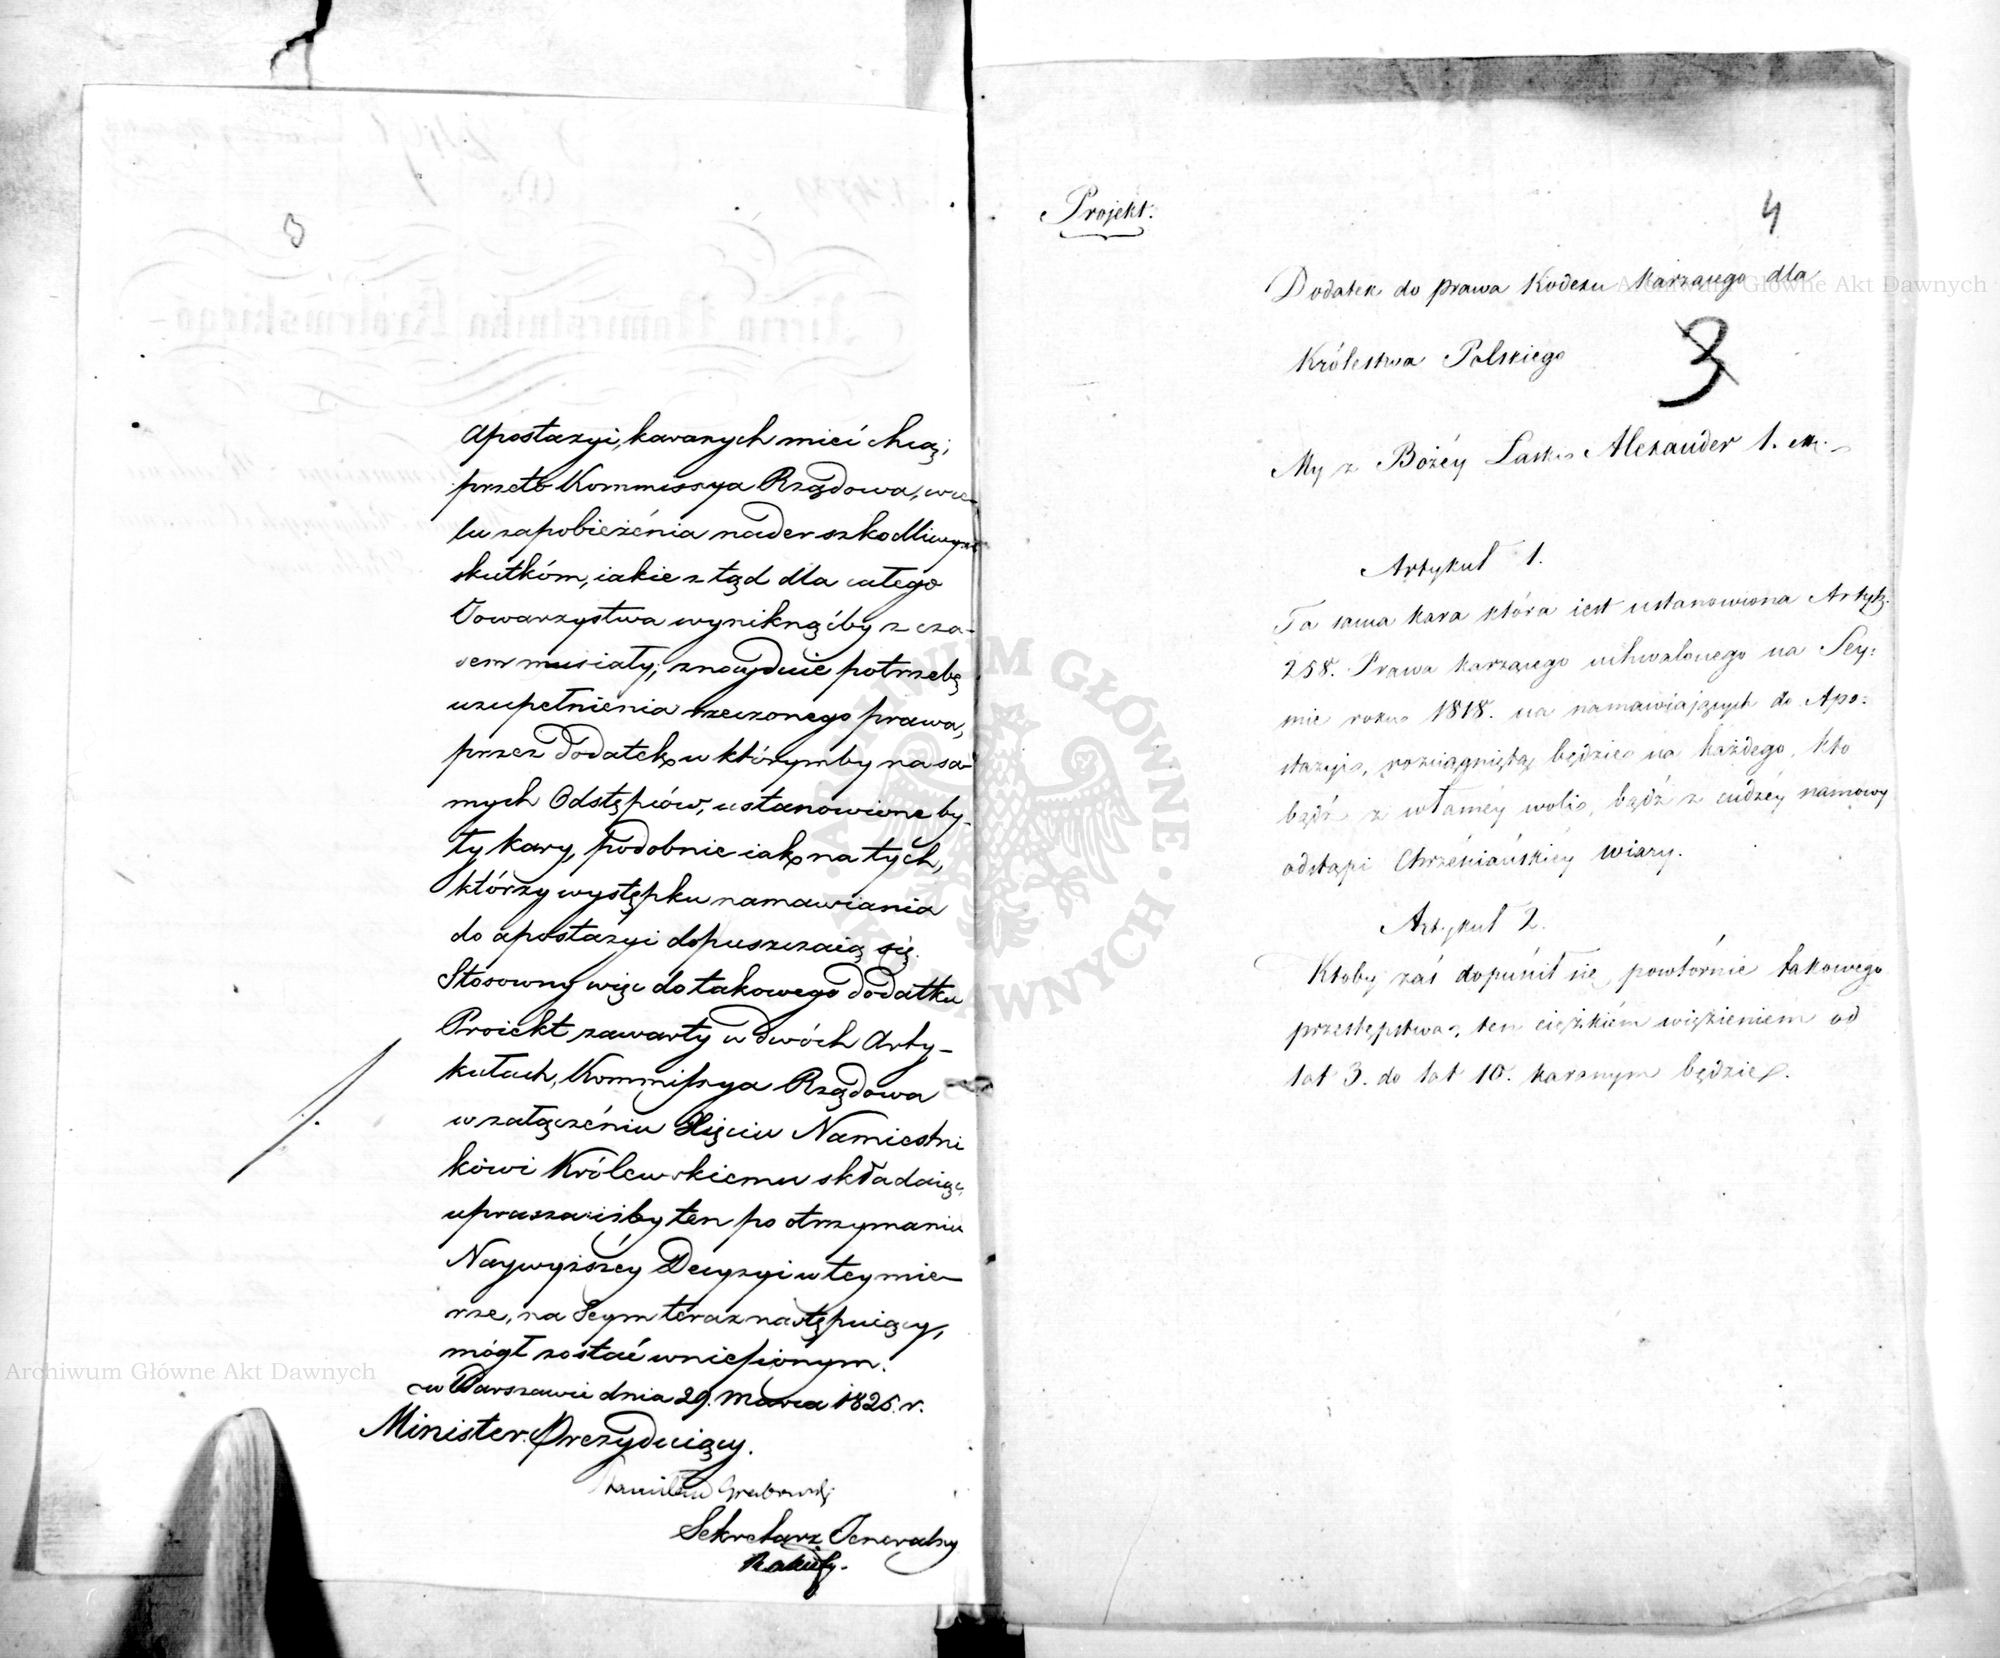 3
apostazyi, karanych mieć chcą;
przeto Kommissya Rządowa, w ce-
lu zapobieżenia nader szkodliwym
skutkóm, iakie z tąd dla całego
Towarzystwa wyniknąćby z cza-
sem musiały; znayduie potrzebę
uzupełnienia rzeczonego prawa,
przez dodatek, w którymby na sa-
mych Odstępców, ustanowione by-
ły kary, podobnie iak na tych,
którzy występku namawiania
do apostazyi dopuszczaią się.
Stosowny więc do takowego dodatku
Proiekt zawarty w dwóch Arty-
kułach, Kommissya Rządowa
w załączéniu Xięciu Namiestni
kowi Królewskiemu składaiąc,
uprasza iżby ten po otrzymaniu
Naywyższéy Decyzyi w tey mie-
rze, na Seym teraz następuiący,
mógł zostać wniesionym.
w Warszawie dnia 29. Marca 1825. r.
Minister Prezyduiący.
Stanisław Grabowski
Sekretarz Jeneralny
Projekt.
4
Dodatek do prawa Kodexu karzącego dla
Królestwa Polskiego
3
My z Bożéy Łaski Alexander 1. etc.
Artykuł 1.
Ta sama kara która iest ustanowiona Artyk:
258. Prawa karzącego uchwalonego na Sey:
mie roku 1818. na namawiających do Apo:
stazyi, rozciągniętą będzie na każdego, kto
bądź z własnéy woli, bądź z cudzéy namowy
odstąpi Chrześciańskiéy wiary.
Artykuł 2.
Ktoby zaś dopuścił się powtórnie takowego
przestępstwa, ten ciężkiém więzieniem od
lat 3. do lat 10. karanym będzie.
Archiwum Główne Akt Dawnych
Archiwum Główne Akt Dawnych
ARCHIWUM GŁÓWNE AKT DAWNYCH